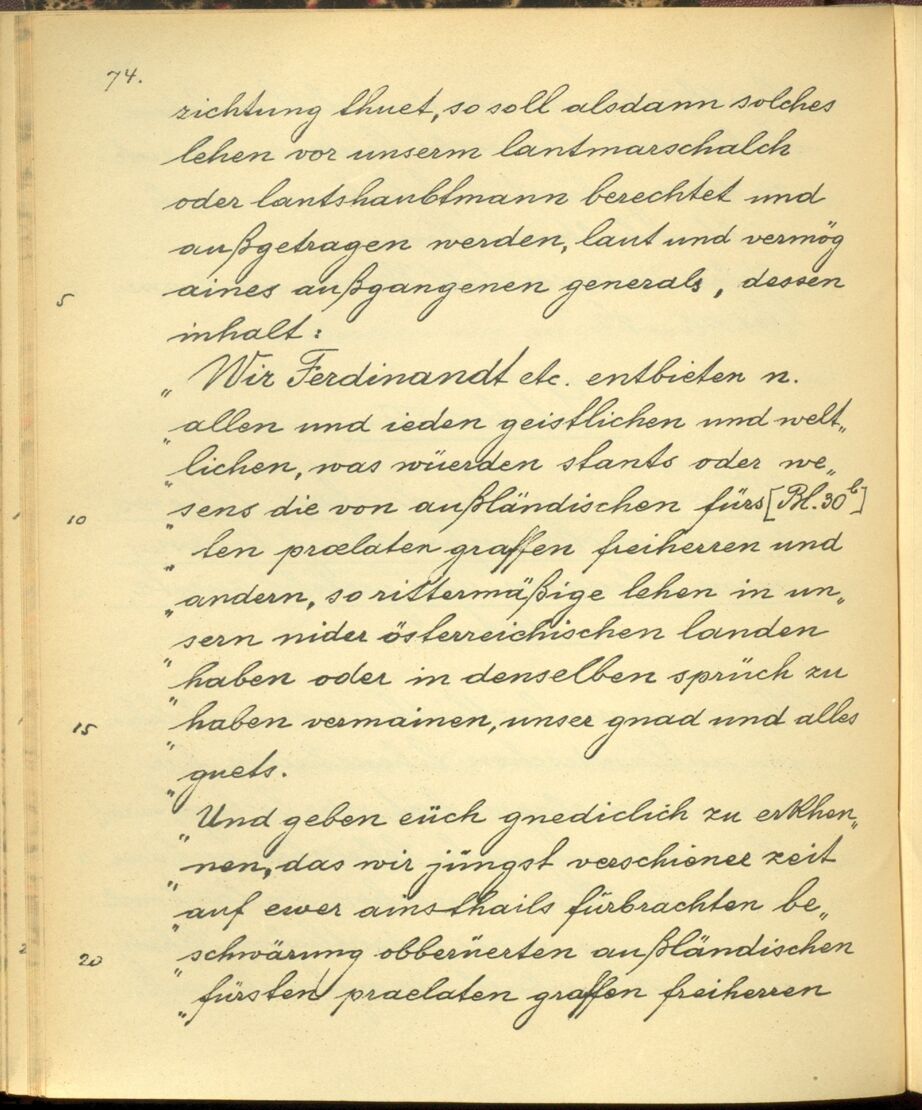 74.
richtung thuet, so soll alsdann solches
lehen vor unserm lantmarschalch
oder lantshaubtmann berechtet und
außgetragen werden, laut und vermög
5 aines außgangenen generals, dessen
inhalt:
„ Wir Ferdinandt etc. entbieten n.
„ allen und ieden geistlichen und welt„
„ lichen, was wüerden stants oder we„
10 „ sens die von außländischen fürs [Bl. 30b]
„ ten prælaten graffen freiherren und
„ andern, so rittermäßige lehen in un„
„ sern nider österreichischen landen
„ haben oder in denselben sprüch zu
15 „ haben vermainen, unser gnad und alles
„ guets.
„ Und geben eüch gnediclich zu erkhen„
„ nen, das wir jüngst verschiener zeit
„ auf ewer ainsthails fürbrachten be„
20 „ schwärung obberüerten außländischen
„ fürsten praelaten graffen freiherren